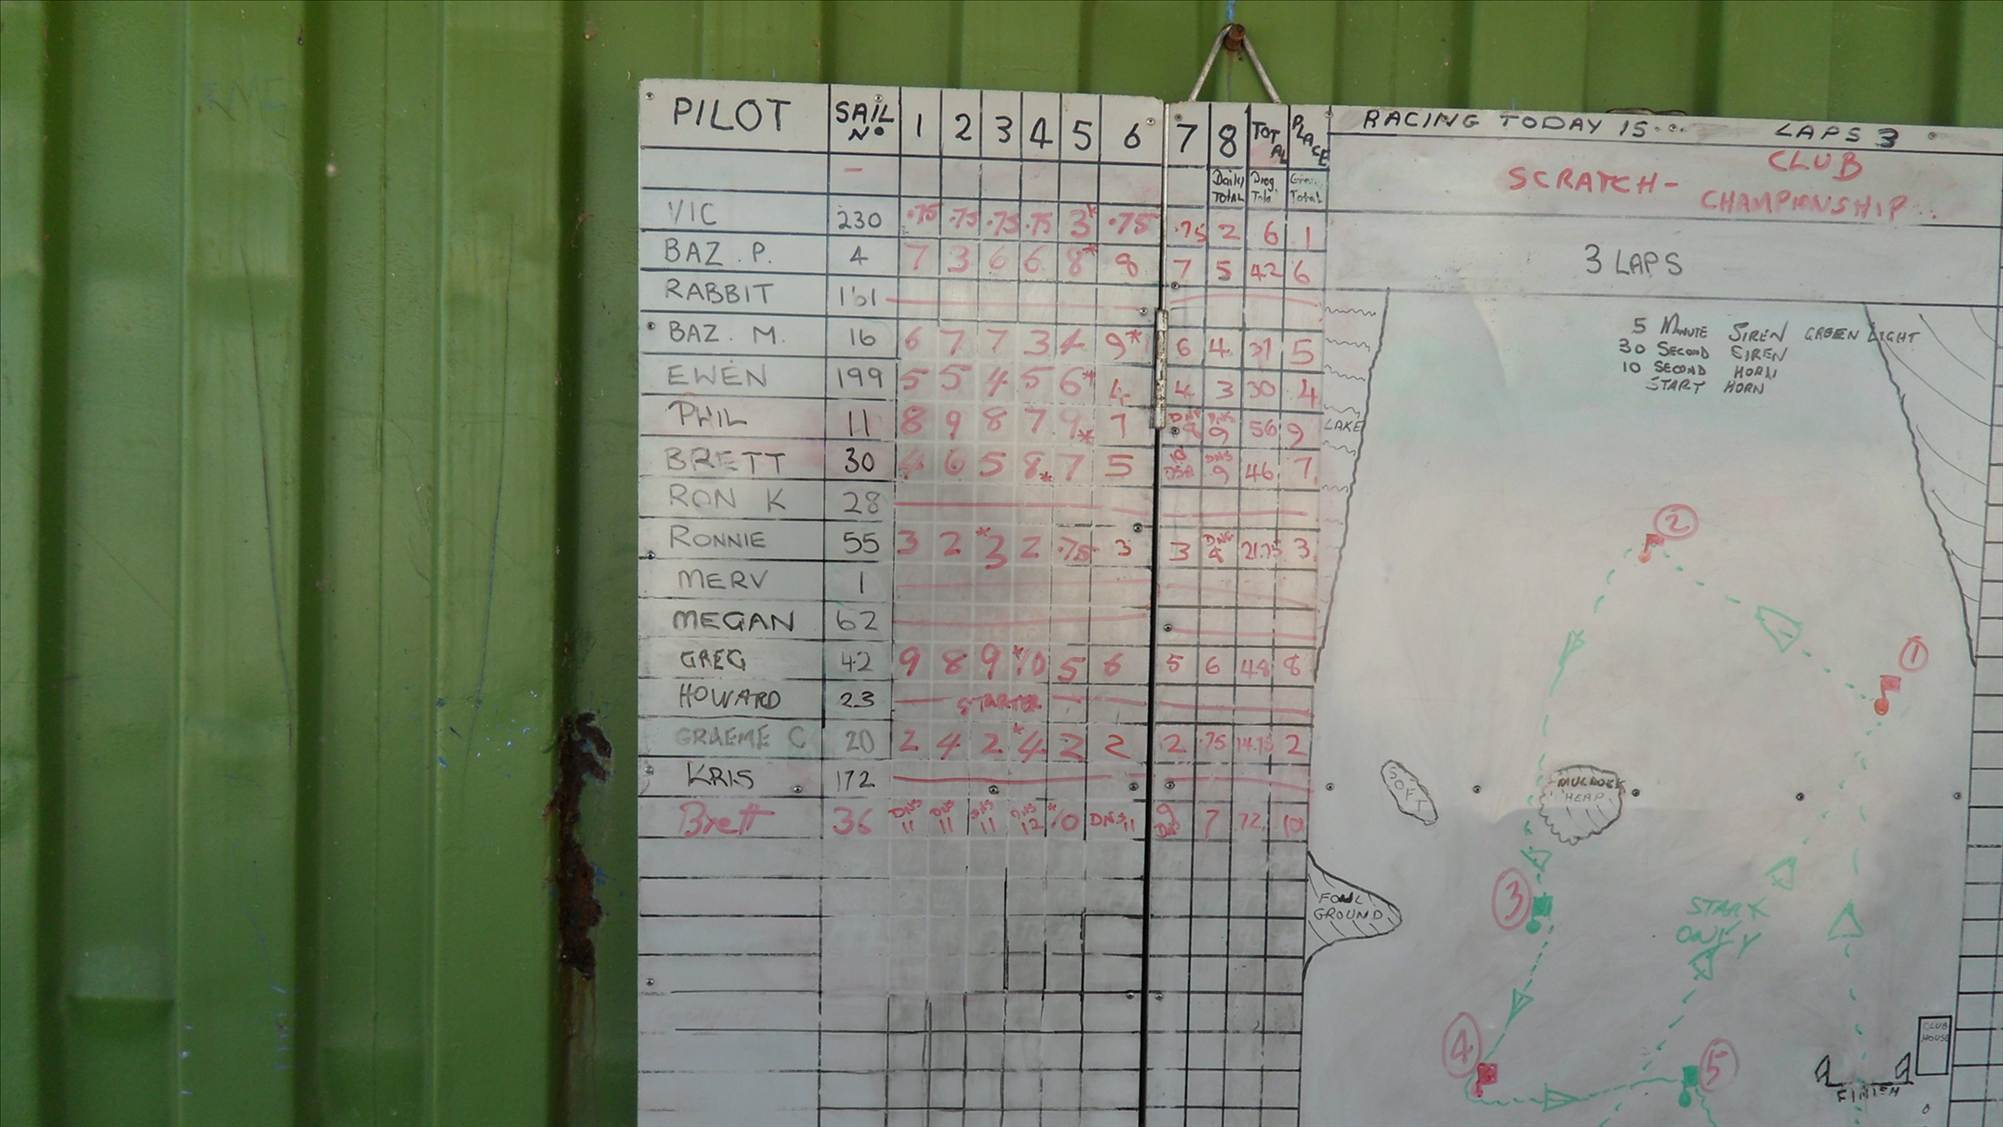 PILOT SAIL Nº 1 2 3 4 5 6 7 8 TOTAL PLACE
Daily TOTAL Prog. Total
VIC 230 .75 .75 .75 .75 3* .75 .75 2 6 1
BAZ. P. 4 7 3 6 6 8* 8 7 5 42 6
RABBIT 161
BAZ. M. 16 6 7 7 3 4 9* 6 4 5
EWEN 199 5 5 4 5 6* 4 4 3 30 4
PHIL 11 8 9 8 7 9* 7 9 56 9
BRETT 30 4 6 5 8* 7 5 DNS 9 46 7
RON K 28
RONNIE 55 3 2 *3 2 .75 3 3 21.75 3
MERV 1
MEGAN 62
GREG 42 9 8 9 *10 5 6 5 6 48 8
HOWARD 23 STARTER
GRAEME C 20 2 4 2 *4 2 2 2 .75 14.75 2
KRIS 172
Brett 36 DNS 11 DNS 11 DNS 11 DNS 12 *10 DNS 11 9 7 72 10
RACING TODAY IS... LAPS 3
SCRATCH - CLUB
CHAMPIONSHIP..
3 LAPS
5 MINUTE SIREN GREEN LIGHT
30 SECOND SIREN
10 SECOND HORN
START HORN
LAKE
2
1
SOFT
HEAP
3
FOUL
GROUND
START
ONLY
4
5
CLUB
HOUSE
FINISH